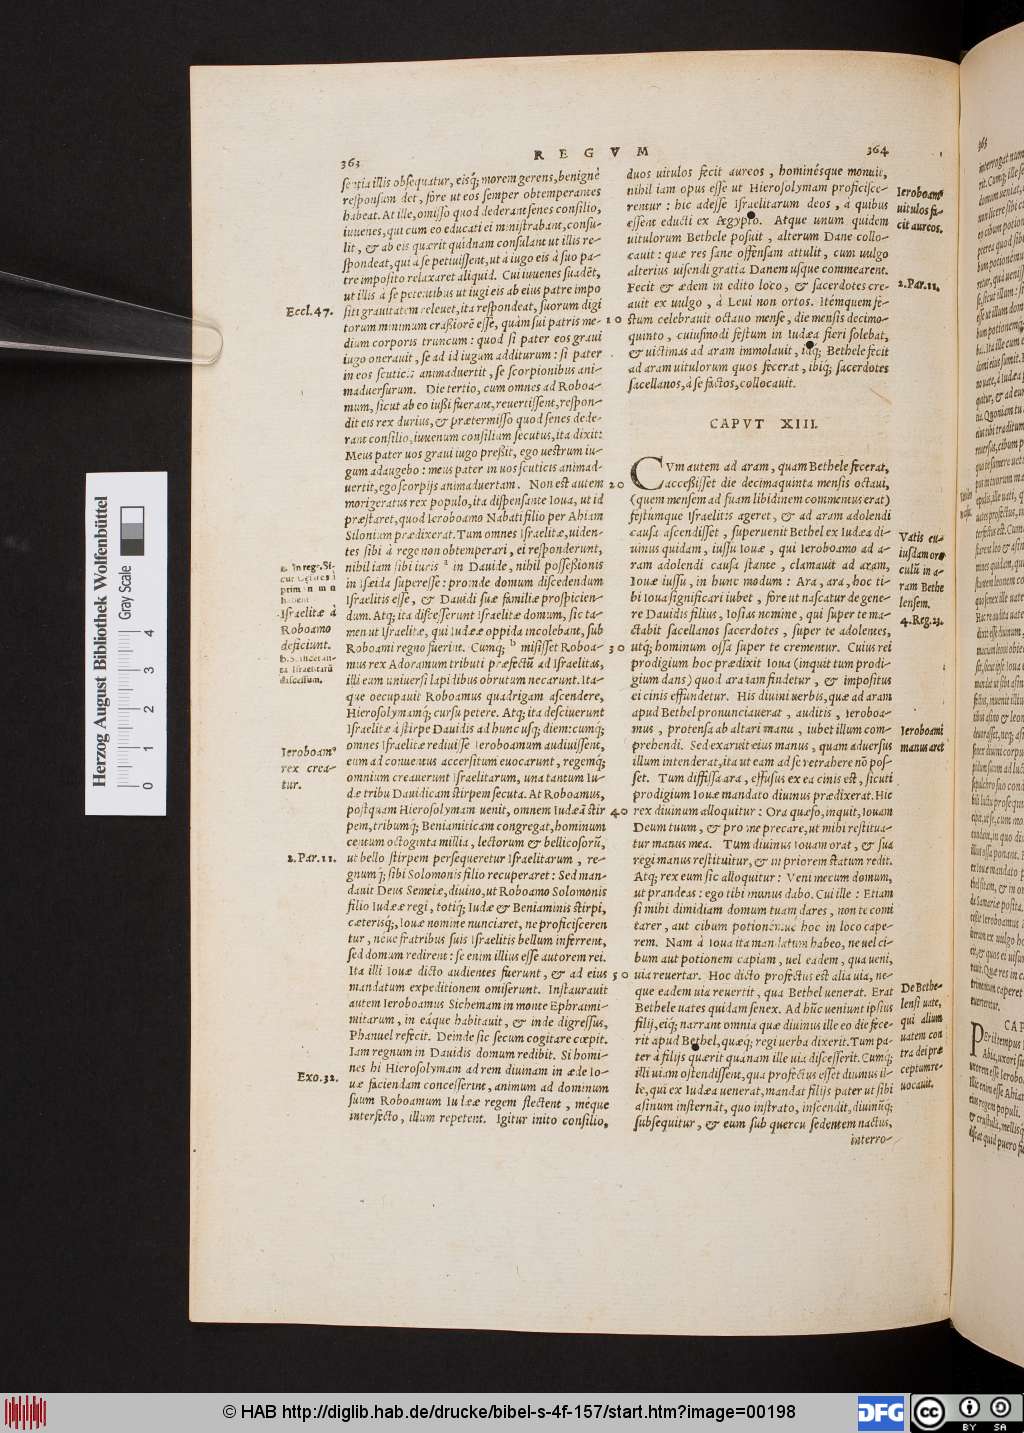 363
REGVM
364
sentia illis obsequatur, eisq́; morem gerens, benignè
responsum det, fore ut eos semper obtemperantes
habeat. At ille, omisso quod dederant senes consilio,
iuuenes, qui cum eo educati ei ministrabant, consu-
lit, & ab eis quærit quidnam consulant ut illis re-
spondeat, qui a se petiuissent, ut à iugo eis à suo pa-
tre imposito relaxaret aliquid. Cui iuuenes suadẽt,
ut illis à se petentibus ut iugi eis ab eius patre impo
siti grauitatem releuet, ita respondeat, suorum digi
torum minimum crassiorẽ esse, quàm sui patris me-
dium corporis truncum: quod si pater eos graui
iugo onerauit, se ad id iugum additurum: si pater
in eos scuticis animaduertit, se scorpionibus ani-
maduersurum. Die tertio, cum omnes ad Roboa-
mum, sicut ab eo iussi fuerant, reuertissent, respon-
dit eis rex durius, & prætermisso quod senes dede-
rant consilio, iuuenum consilium secutus, ita dixit:
Meus pater uos graui iugo pressit, ego uestrum iu-
gum adaugebo: meus pater in uos scuticis animad-
uertit, ego scorpijs animaduertam. Non est autem
morigeratus rex populo, ita dispensante Ioua, ut id
præstaret, quod Ieroboamo Nabati filio per Ahiam
Silonium prædixerat. Tum omnes Israelitæ, uiden-
tes sibi à rege non obtemperari, ei responderunt,
nihil iam sibi iuris a in Dauide, nihil possessionis
in Isæida superesse: proinde domum discedendum
Israelitis esse, & Dauidi suæ familiæ prospicien-
dum. Atq; ita discesserunt Israelitæ domum, sic ta-
men ut Israelitæ, qui Iudææ oppida incolebant, sub
Roboami regno fuerint. Cumq; b misisset Roboa-
mus rex Adoramum tributi præfectũ ad Israelitas,
illi eum uniuersi lapidibus obrutum necarunt. Ita-
que occupauit Roboamus quadrigam ascendere,
Hierosolymamq́; cursu petere. Atq; ita desciuerunt
Israelitæ à stirpe Dauidis ad hunc usq; diem: cumq́;
omnes Israelitæ rediuisse Ieroboamum audiuissent,
eum ad conuentus accersitum euocarunt, regemq;
omnium creauerunt Israelitarum, una tantum Iu-
dæ tribu Dauidicam stirpem secuta. At Roboamus,
postquam Hierosolymam uenit, omnem Iudæã stir
pem, tribumq́; Beniamiticam congregat, hominum
centum octoginta millia, lectorum & bellicosorũ,
ut bello stirpem persequeretur Israelitarum, re-
gnumq́; sibi Solomonis filio recuperaret: Sed man-
dauit Deus Semeiæ, diuino, ut Roboamo Solomonis
filio Iudææ regi, totiq́; Iudæ & Beniaminis stirpi,
cæterisq́;, Iouæ nomine nunciaret, ne proficisceren
tur, neue fratribus suis Israelitis bellum inferrent,
sed domum redirent: se enim illius esse autorem rei.
Ita illi Iouæ dicto audientes fuerunt, & ad eius
mandatum expeditionem omiserunt. Instaurauit
autem Ieroboamus Sichemam in monte Ephraimi-
mitarum, in eáque habitauit, & inde digressus,
Phanuel refecit. Deinde sic secum cogitare cœpit.
Iam regnum in Dauidis domum redibit. Si homi-
nes hi Hierosolymam ad rem diuinam in æde Io-
uæ faciendam concesserint, animum ad dominum
suum Roboamum Iudææ regem flectent, méque
intersecto, illum repetent. Igitur inito consilio,
Eccl. 47.
a. In reg. Si-
Israelitæ à
Roboamo
deficiunt.
discessum.
Ieroboamꝰ
rex crea-
tur.
2. Par. 11.
Exo. 32.
10
20
30
40
50
duos uitulos fecit aureos, hominésque monuit,
nihil iam opus esse ut Hierosolymam proficisce-
rentur: hic adesse Israelitarum deos, à quibus
essent educti ex Ægypto. Atque unum quidem
uitulorum Bethele posuit, alterum Dane collo-
cauit: quæ res sane offensam attulit, cum uulgo
alterius uisendi gratia Danem usque commearent.
Fecit & ædem in edito loco, & sacerdotes cre-
auit ex uulgo, à Leui non ortos. Itémquem fe-
stum celebrauit octauo mense, die mensis decimo-
quinto, cuiusmodi festum in Iudæa fieri solebat,
& uictimas ad aram immolauit, idq; Bethele fecit
ad aram uitulorum quos fecerat, ibiq́; sacerdotes
sacellanos, à se factos, collocauit.
CAPVT XIII.
CVm autem ad aram, quam Bethele fecerat,
accessisset die decimaquinta mensis octaui,
(quem mensem ad suam libidinem commentus erat)
festumque Israelitis ageret, & ad aram adolendi
causa ascendisset, superuenit Bethel ex Iudæa di-
uinus quidam, iussu Iouæ, qui Ieroboamo ad a-
ram adolendi causa stante, clamauit ad aram,
Iouæ iussu, in hunc modum: Ara, ara, hoc ti-
bi Ioua significari iubet, fore ut nascatur de gene-
re Dauidis filius, Iosias nomine, qui super te ma-
ctabit sacellanos sacerdotes, super te adolentes,
utq́; hominum ossa super te crementur. Cuius rei
prodigium hoc prædixit Ioua (inquit tum prodi-
gium dans) quod ara iam findetur, & impositus
ei cinis effundetur. His diuini uerbis, quæ ad aram
apud Bethel pronunciauerat, auditis, Ieroboa-
mus, protensa ab altari manu, iubet illum com-
prehendi. Sed exaruit eius manus, quam aduersus
illum intenderat, ita ut eam ad se retrahere nõ pos-
set. Tum diffissa ara, effusus ex ea cinis est, sicuti
prodigium Iouæ mandato diuinus prædixerat. Hic
rex diuinum alloquitur: Ora quæso, inquit, Iouam
Deum tuum, & pro me precare, ut mihi restitua-
tur manus mea. Tum diuinus Iouam orat, & sua
regi manus restituitur, & in priorem statum redit.
Atq; rex eum sic alloquitur: Veni mecum domum,
ut prandeas: ego tibi munus dabo. Cui ille: Etiam
si mihi dimidiam domum tuam dares, non te comi
tarer, aut cibum potionemue hoc in loco cape-
rem. Nam à Ioua ita mandatum habeo, ne uel ci-
bum aut potionem capiam, uel eadem, qua ueni,
uia reuertar. Hoc dicto profectus est alia uia, ne-
que eadem uia reuertit, qua Bethel uenerat. Erat
Bethele uates quidam senex. Ad hũc ueniunt ipsius
filij, eiq́; narrant omnia quæ diuinus ille eo die fece-
rit apud Bethel, quæq; regi uerba dixerit. Tum pa-
ter à filijs quærit quánam ille uia discesserit. Cumq;
illi uiam ostendissent, qua profectus esset diuinus il-
le, qui ex Iudæa uenerat, mandat filijs pater ut sibi
asinum insternãt, quo instrato, inscendit, diuinũq;
subsequitur, & eum sub quercu sedentem nactus,
interro-
Ieroboamꝰ
uitulos fa-
cit aureos.
2. Par. 11.
Vatis cu-
iusdam ora
culũ in a-
ram Bethe
lensem.
4. Reg. 23.
Ieroboami
manus aret
De Bethe-
lensi uate,
qui alium
uatem con
tra dei præ
ceptum re-
uocauit.
Herzog August Bibliothek Wolfenbüttel
Gray Scale
0 1 2 3 4
© HAB http://diglib.hab.de/drucke/bibel-s-4f-157/start.htm?image=00198
DFG
cc
BY SA